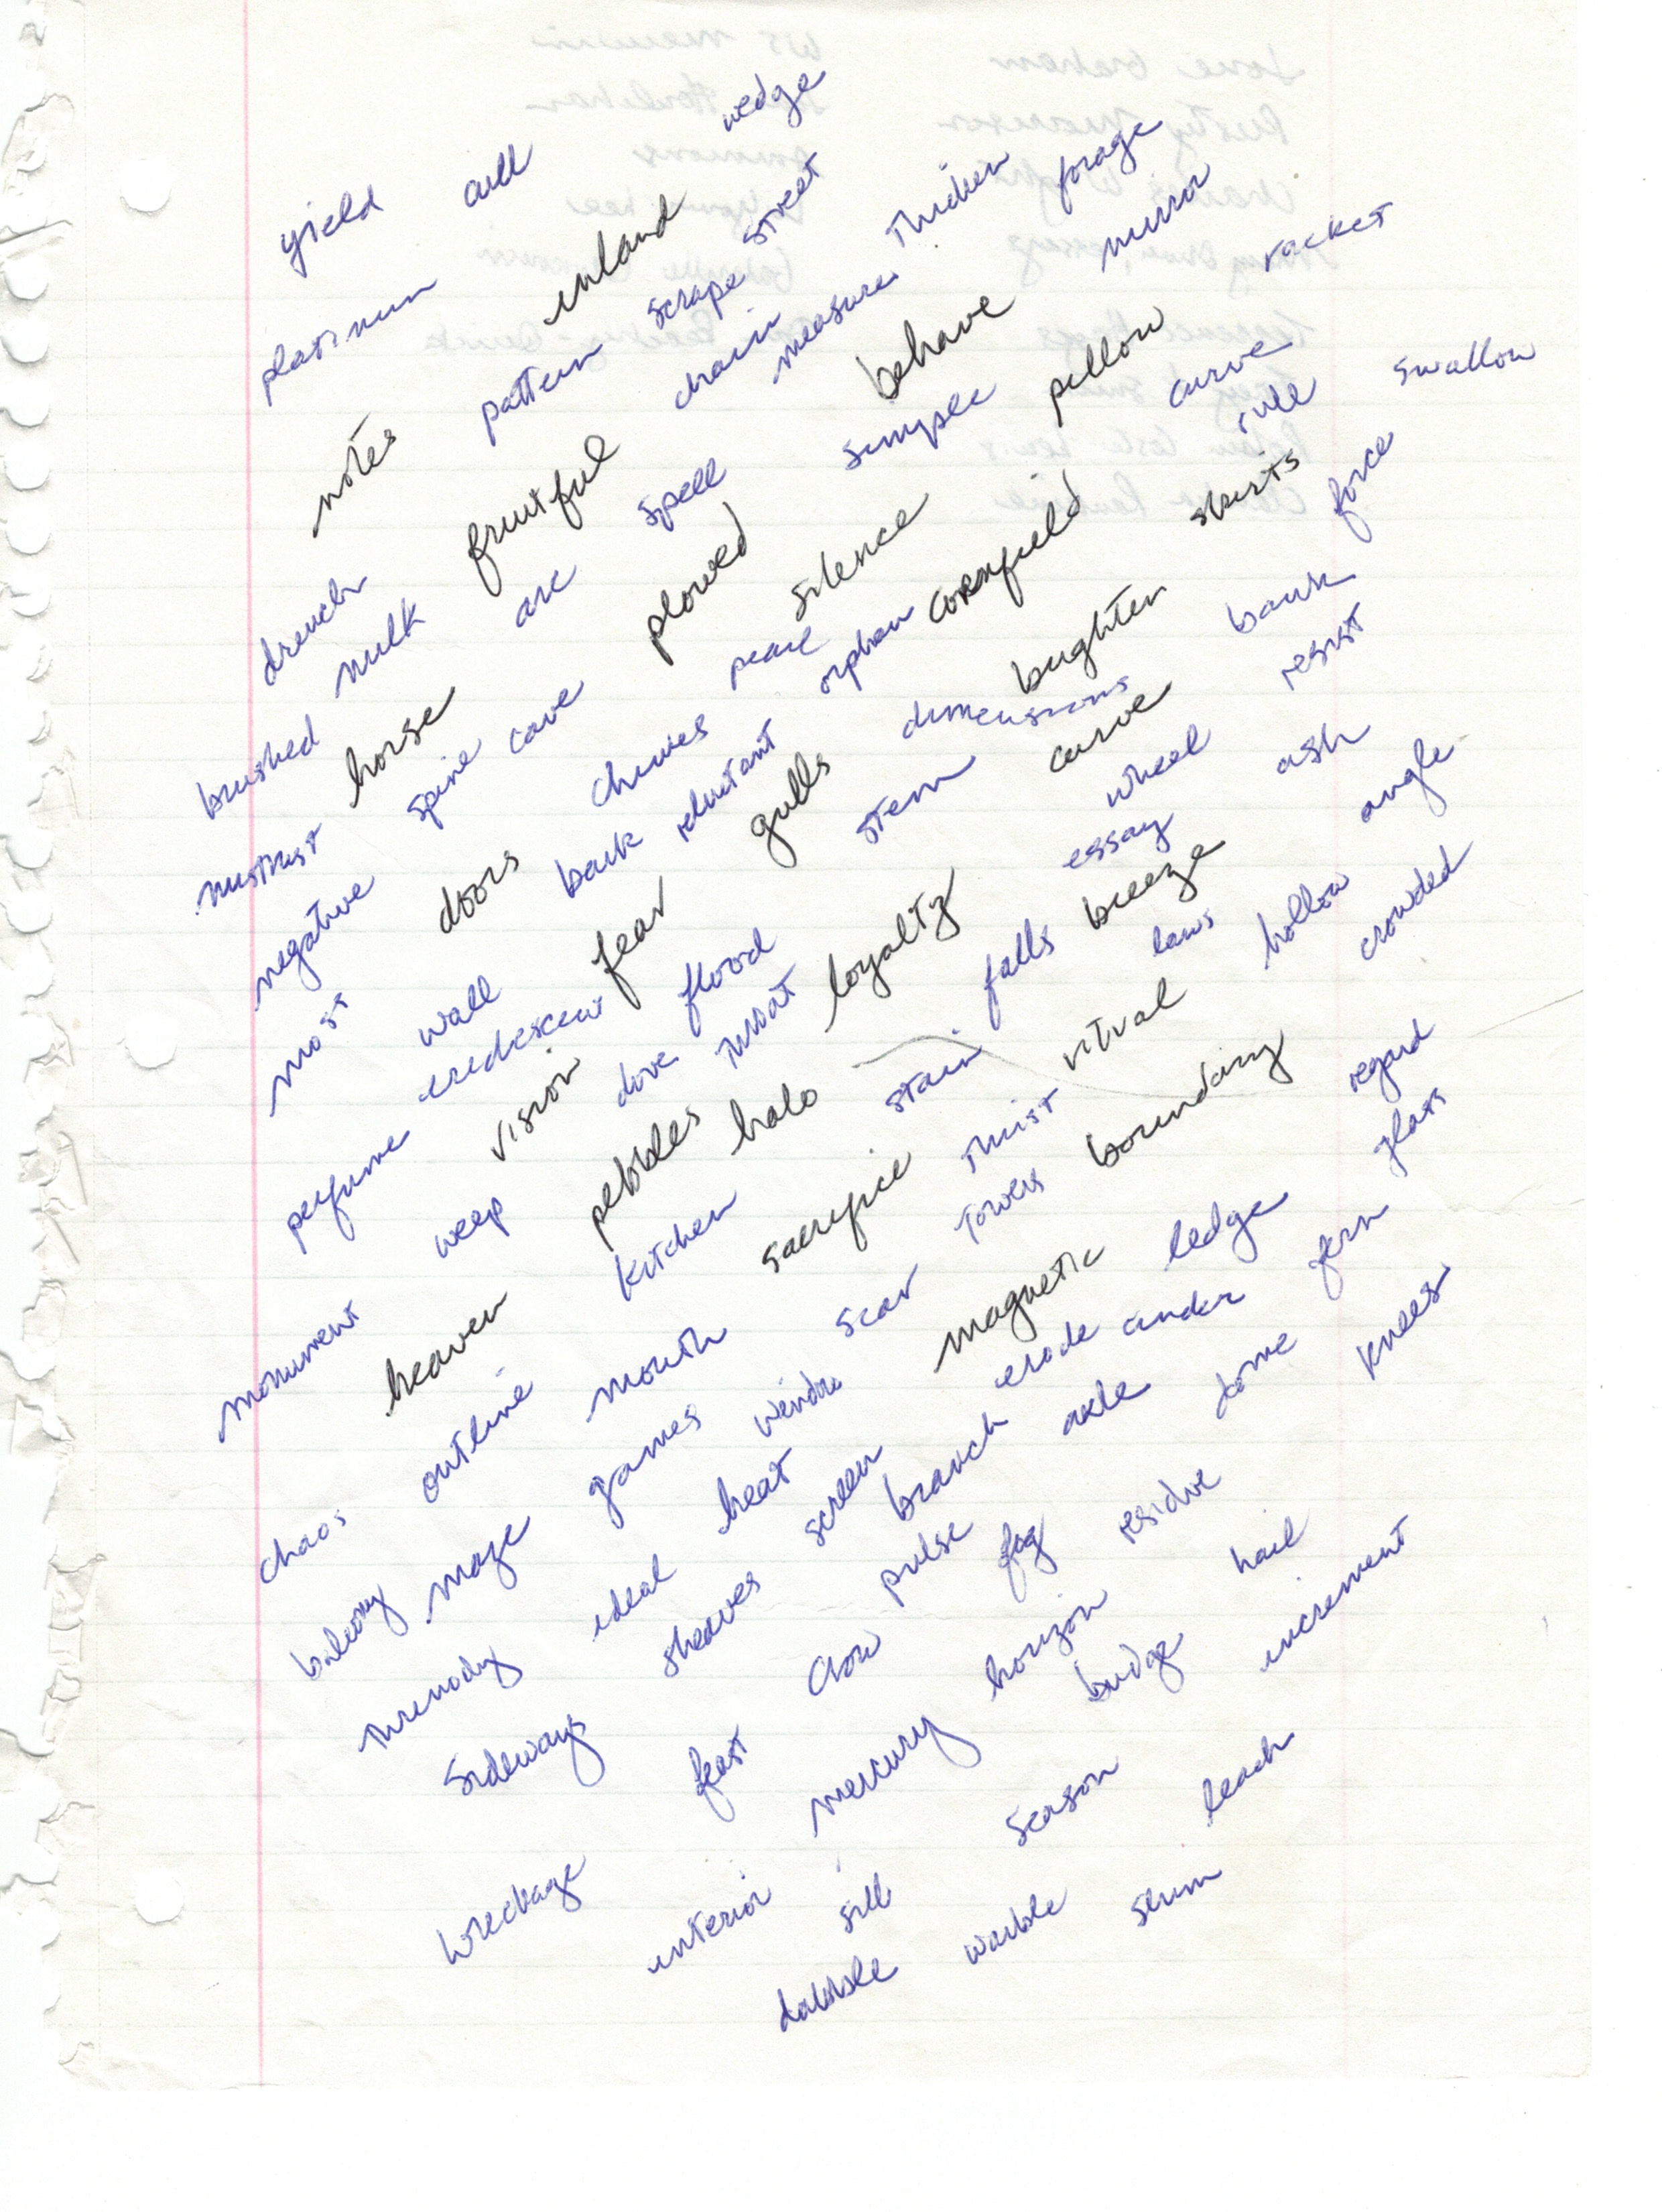 yield cull wedge
platinum inland scrape street
notes pattern chain measure thicken forage
drench fruitful behave mirror
brushed milk arc spell simple pillow racket
mistrust horse plowed silence curve rule swallow
negative spine cave pearl orphan cornfield skirts force
moss doors chimes brighten bank
wall bark reluctant gulls dimensions carve resist
perfume iridescent fear stem wheel ash
vision dove flood loyalty essay breeze angle
monument weep pebbles throat falls laws hollow crowded
heaven kitchen halo stain ritual
chaos outline mouth sacrifice thirst boundary regard
balcony maze games scar towers ledge glass
threnody ideal heat window magnetic erode under fern
sideways sheaves screen branch axle dome knees
wreckage feast crow pulse fog residue
interior mercury horizon hail
sill bridge increment
dabble warble season leach
slum